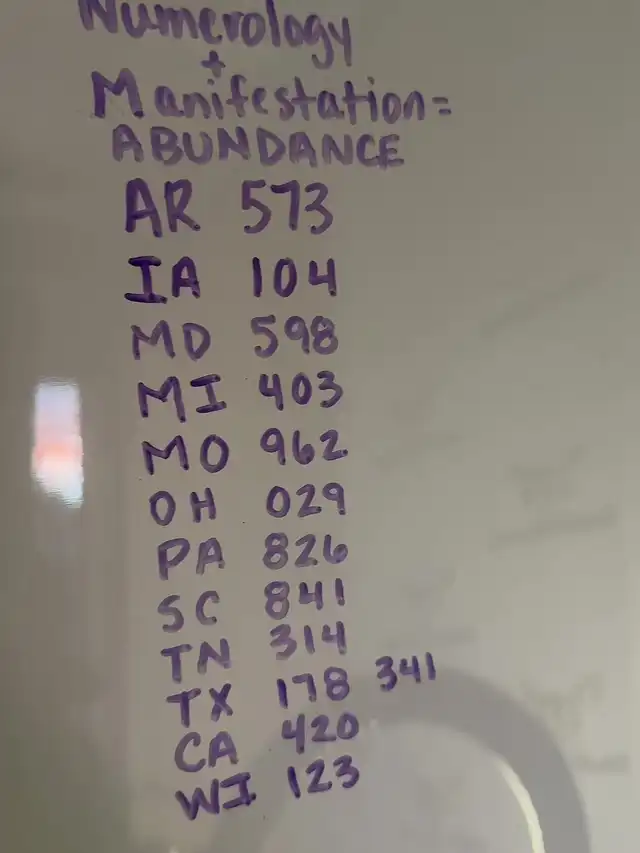 Numerology
+
Manifestation=
ABUNDANCE
AR 573
IA 104
MD 598
MI 403
MO 962
OH 029
PA 826
SC 841
TN 314
TX 178 341
CA 420
WI 123